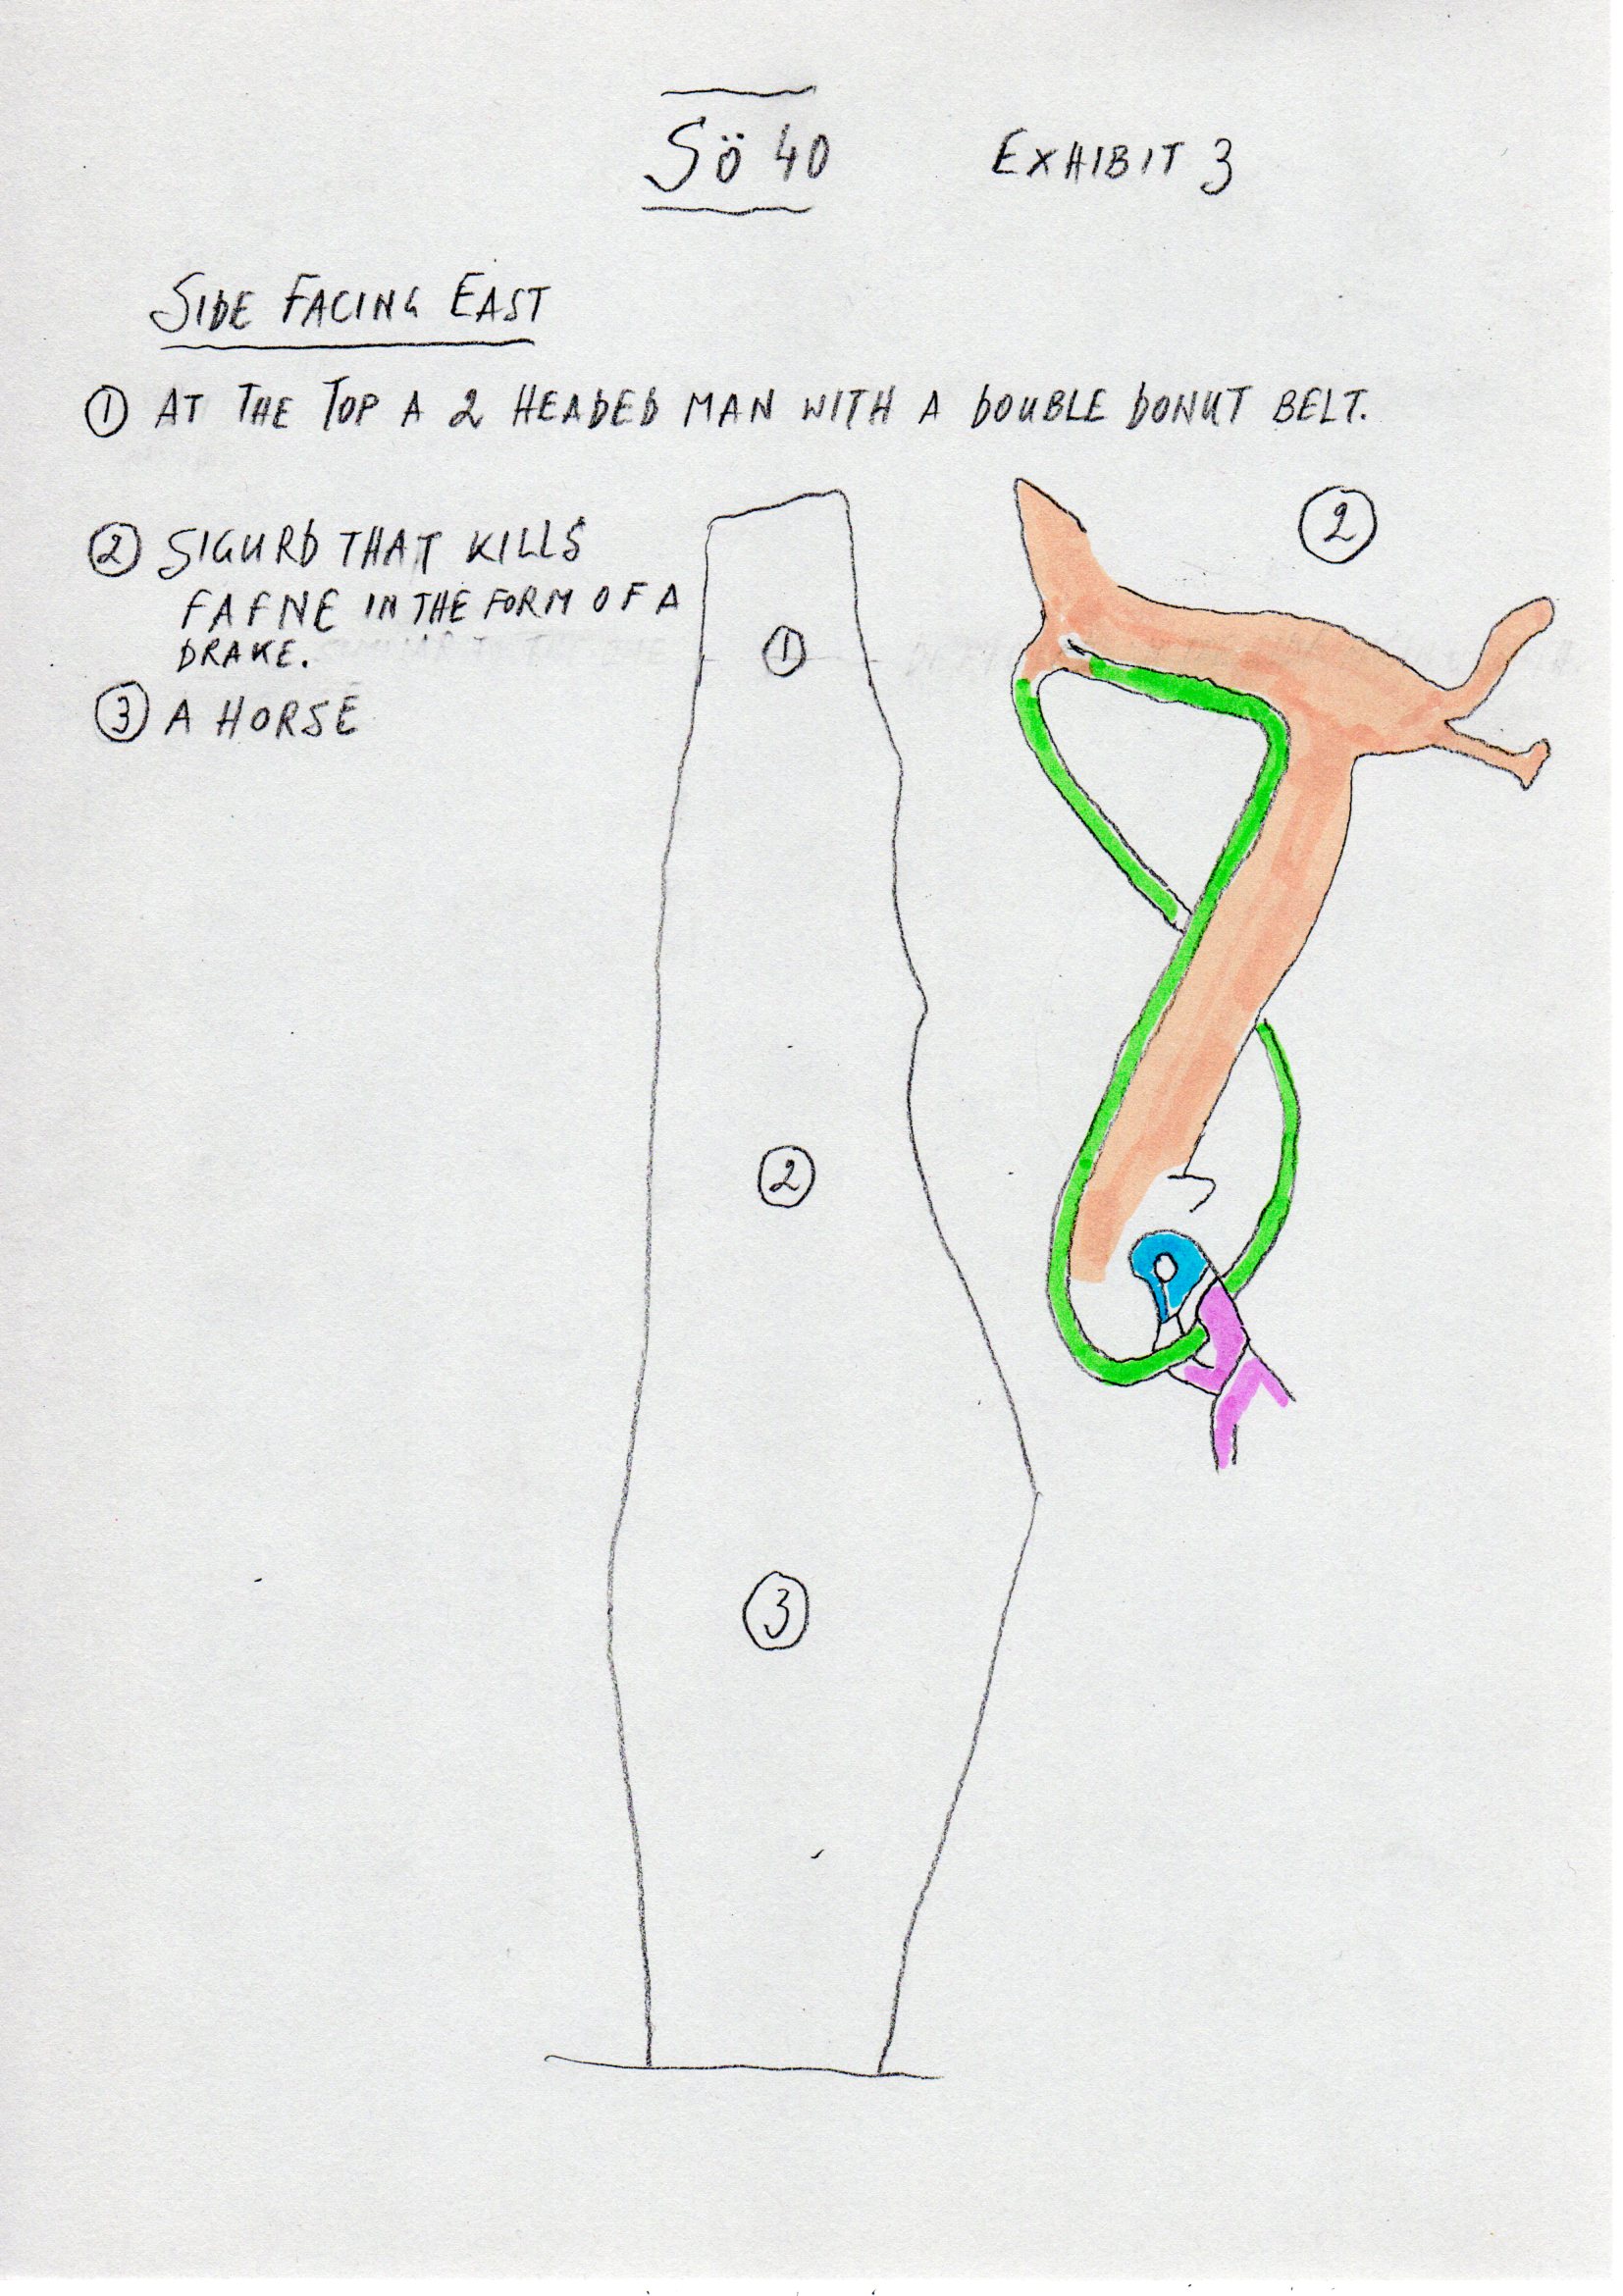 Sö 40
EXHIBIT 3
SIDE FACING EAST
① AT THE TOP A 2 HEADED MAN WITH A DOUBLE DONUT BELT.
② SIGURD THAT KILLS
FAFNE IN THE FORM OF A
DRAKE.
③ A HORSE
②
①
②
③